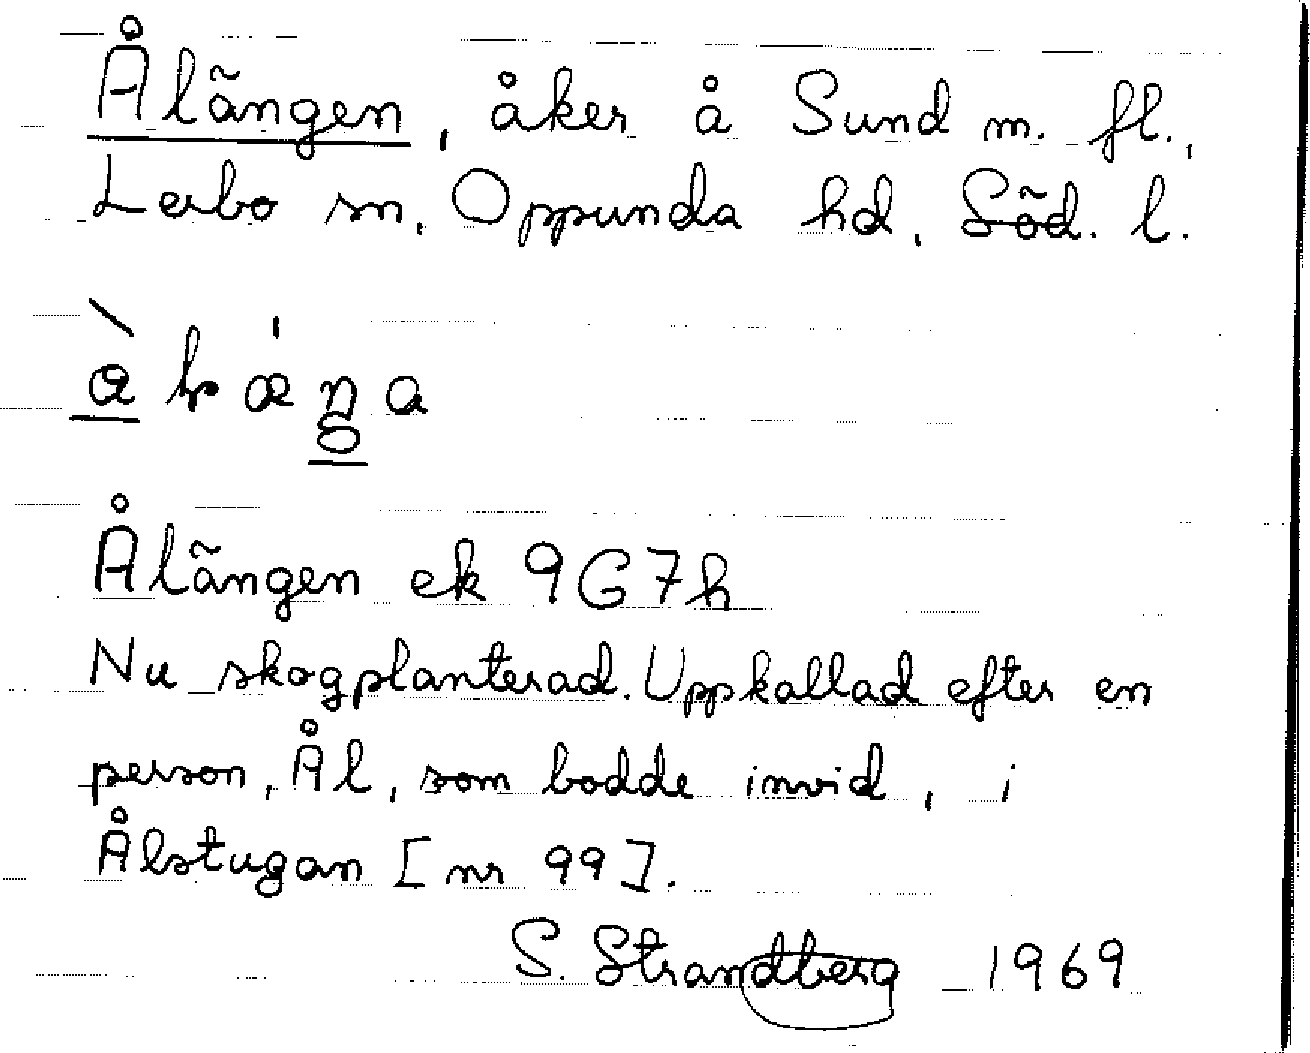 Ålängen, åker å Sund m. fl.,
Lerbo sn, Oppunda hd, Söd. l.
Ålängen ek 9G7h
Nu skogplanterad. Uppkallad efter en
person, Ål, som bodde invid, i
Ålstugan [nr 99].
S. Strandberg 1969